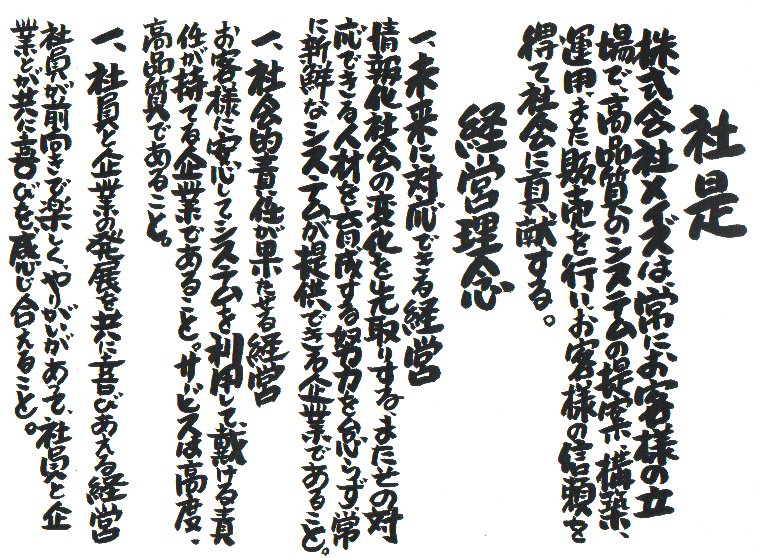 社是
株式会社メイズは、常にお客様の立
場で、高品質のシステムの提案、構築、
運用、また販売を行い、お客様の信頼を
得て社会に貢献する。
経営理念
一、未来に対応できる経営
情報化社会の変化を先取りする、またその対
応できる人材を育成する努力を怠らず、常
に新鮮なシステムが提供できる企業であること。
一、社会的責任が果たせる経営
お客様に安心してシステムを利用して、戴ける責
任が持てる企業であること。サービスは高度、
高品質であること。
一、社員と企業の発展を共に喜びあえる経営
社員が前向きで楽しく、やりがいがあって、社員と企
業とが共に喜びを、感じ合えること。